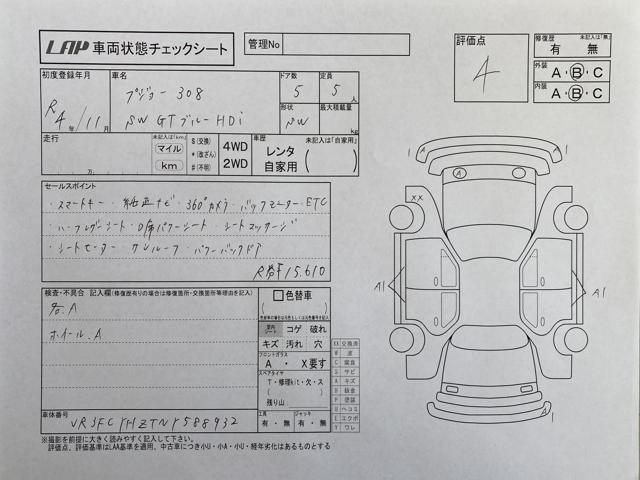 LAP 車両状態チェックシート
管理No
評価点
4
修復歴 未記入は「無」
有 無
外装 A・B・C
内装 A・B・C
初度登録年月
R4年/11月
車名
プジョー 308
SW GTブルーHDi
ドア数
5
定員
5人
形状
SW
最大積載量
kg
走行
万
未記入は「km」
マイル
km
$(交換)
*(改ざん)
#(不明)
4WD
2WD
車歴 未記入は「自家用」
レンタ
自家用
セールスポイント
・スマートキー・純正ナビ・360°カメラ・バックモニター・ETC
・ハーフレザーシート・D席パワーシート・シートマッサージ
・シートヒーター・サンルーフ・パワーバックドア
R券¥15.610
検査・不具合 記入欄(修復歴有りの場合は修復箇所・交換箇所等理由を記入)
各.A
ホイール.A
色替車
室内シート コゲ 破れ
キズ 汚れ 穴
フロントガラス
A ・ X要す
スペアタイヤ
T・修理kit・欠・ス
残り山:
工具
有・無
ジャッキ
有・無
XX 交換済
W 波
C 腐食
S サビ
A キズ
B 鈑金
P 塗装
U ヘコミ
E エクボ
Y ワレ
車体番号
VR3FCYHZTNY588932
※撮影を前提に大きく読みやすく記入して下さい。
評価点、評価基準はLAA基準を適用、中古車につき小U・小A・小U・経年劣化はあるものとする
1
1
A
XX
A1
A1
1